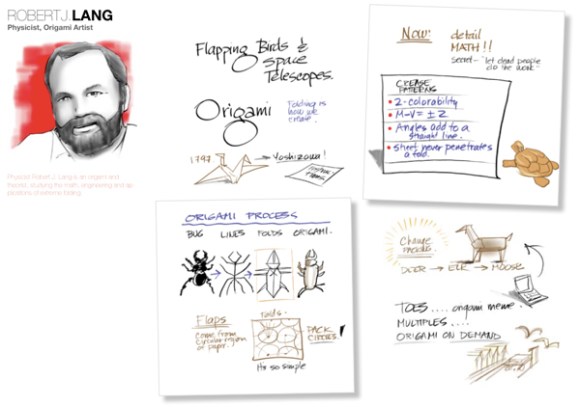 ROBERT J. LANG
Physicist, Origami Artist
Physicist Robert J. Lang is an origami
theorist, studying the math, engineering and
of extreme folding.
Flapping Birds &
Space
Telescopes.
Origami
Folding is
how we
create.
1797
Yoshizawa!
Now:
detail
MATH!!
secret - "let dead people
do the work"
CREASE
PATTERNS
• 2-colorability
• M-V = ± 2
• Angles add to a
straight line.
• Sheet never penetrates
a fold.
ORIGAMI PROCESS
BUG LINES FOLDS ORIGAMI.
Flaps
come from
circular region
of paper.
PACK
CIRCLES!
It's so simple
Change
DEER → ELK → MOOSE
TOES.... origami meme.
MULTIPLES....
ORIGAMI ON DEMAND